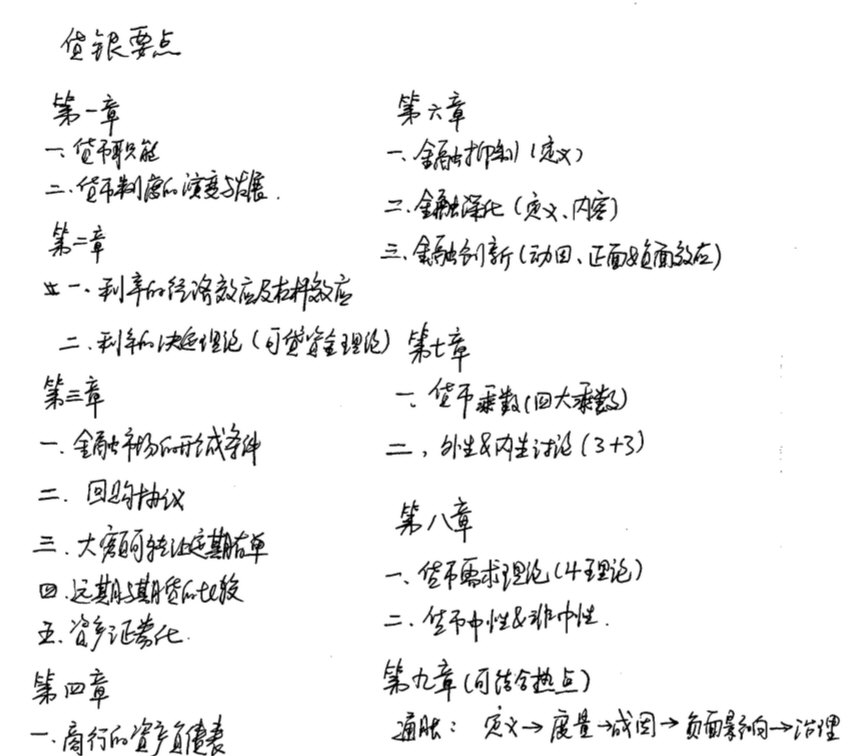 货银要点
第一章
一、货币职能
二、货币制度的演变与发展.
第二章
一、利率的经济效应及杠杆效应
二、利率的决定理论(可贷资金理论)
第三章
一、金融市场的形成条件
二、回购协议
三、大额可转让定期存单
四、远期与期货的比较
五、资产证券化.
第四章
一、商行的资产负债表
第六章
一、金融抑制(定义)
二、金融深化(定义、内容)
三、金融创新(动因、正面&负面效应)
第七章
一、货币乘数(四大乘数)
二、外生&内生讨论(3+3)
第八章
一、货币需求理论(4理论)
二、货币中性&非中性.
第九章(可结合热点)
通胀:定义→度量→成因→负面影响→治理